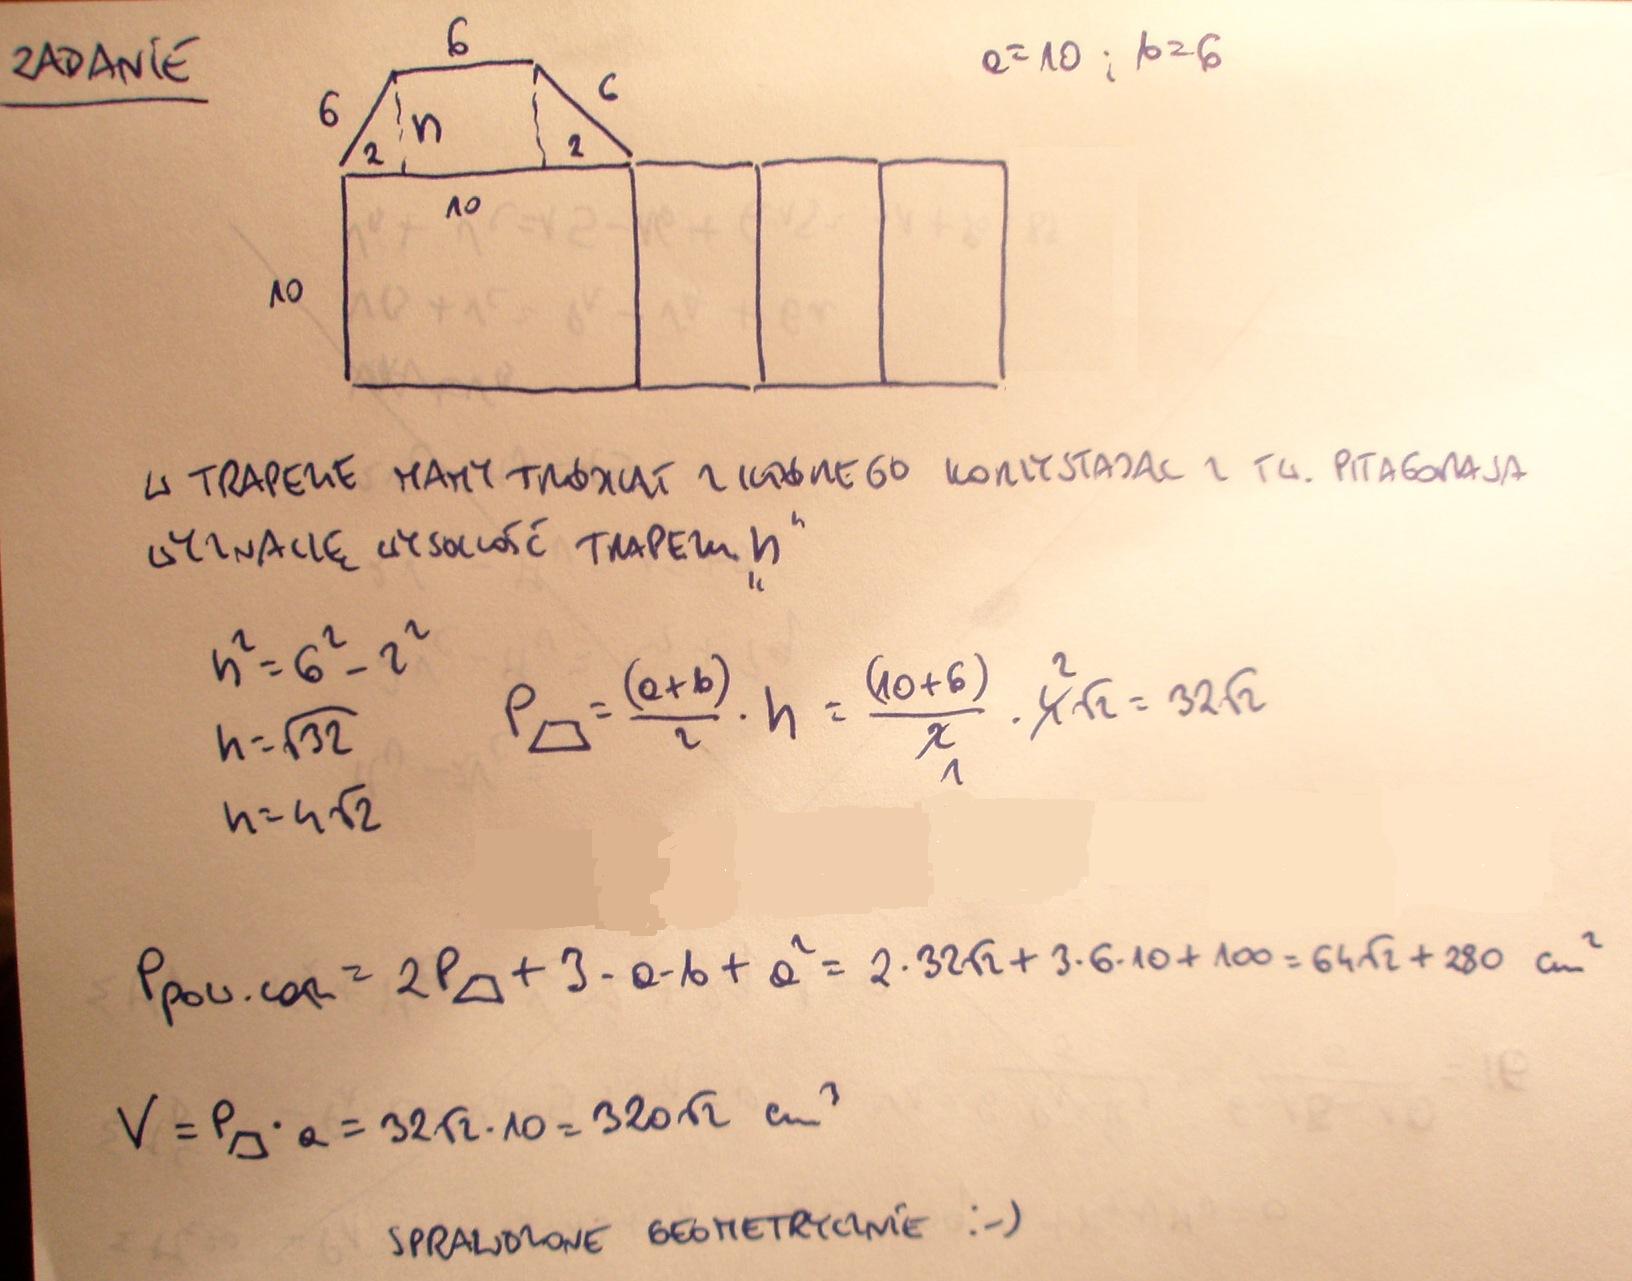 ZADANIE
a=10 ; b=6
6
6 h 6
2 2
10
10
W TRAPEZIE MAMY TRÓJKĄT Z KTÓREGO KORZYSTAJĄC Z TW. PITAGORASA
WYZNACZĘ WYSOKOŚĆ TRAPEZU „h"
h²=6²-2²
h=√32
h=4√2
P⏢ = (a+b)/2 · h = (10+6)/2 · 4√2 = 32√2
2
1
Ppow.cał = 2P⏢ + 3·a·b + a² = 2·32√2 + 3·6·10 + 100 = 64√2 + 280 cm²
V = P⏢ · a = 32√2·10 = 320√2 cm³
SPRAWDZONE GEOMETRYCZNIE :-)